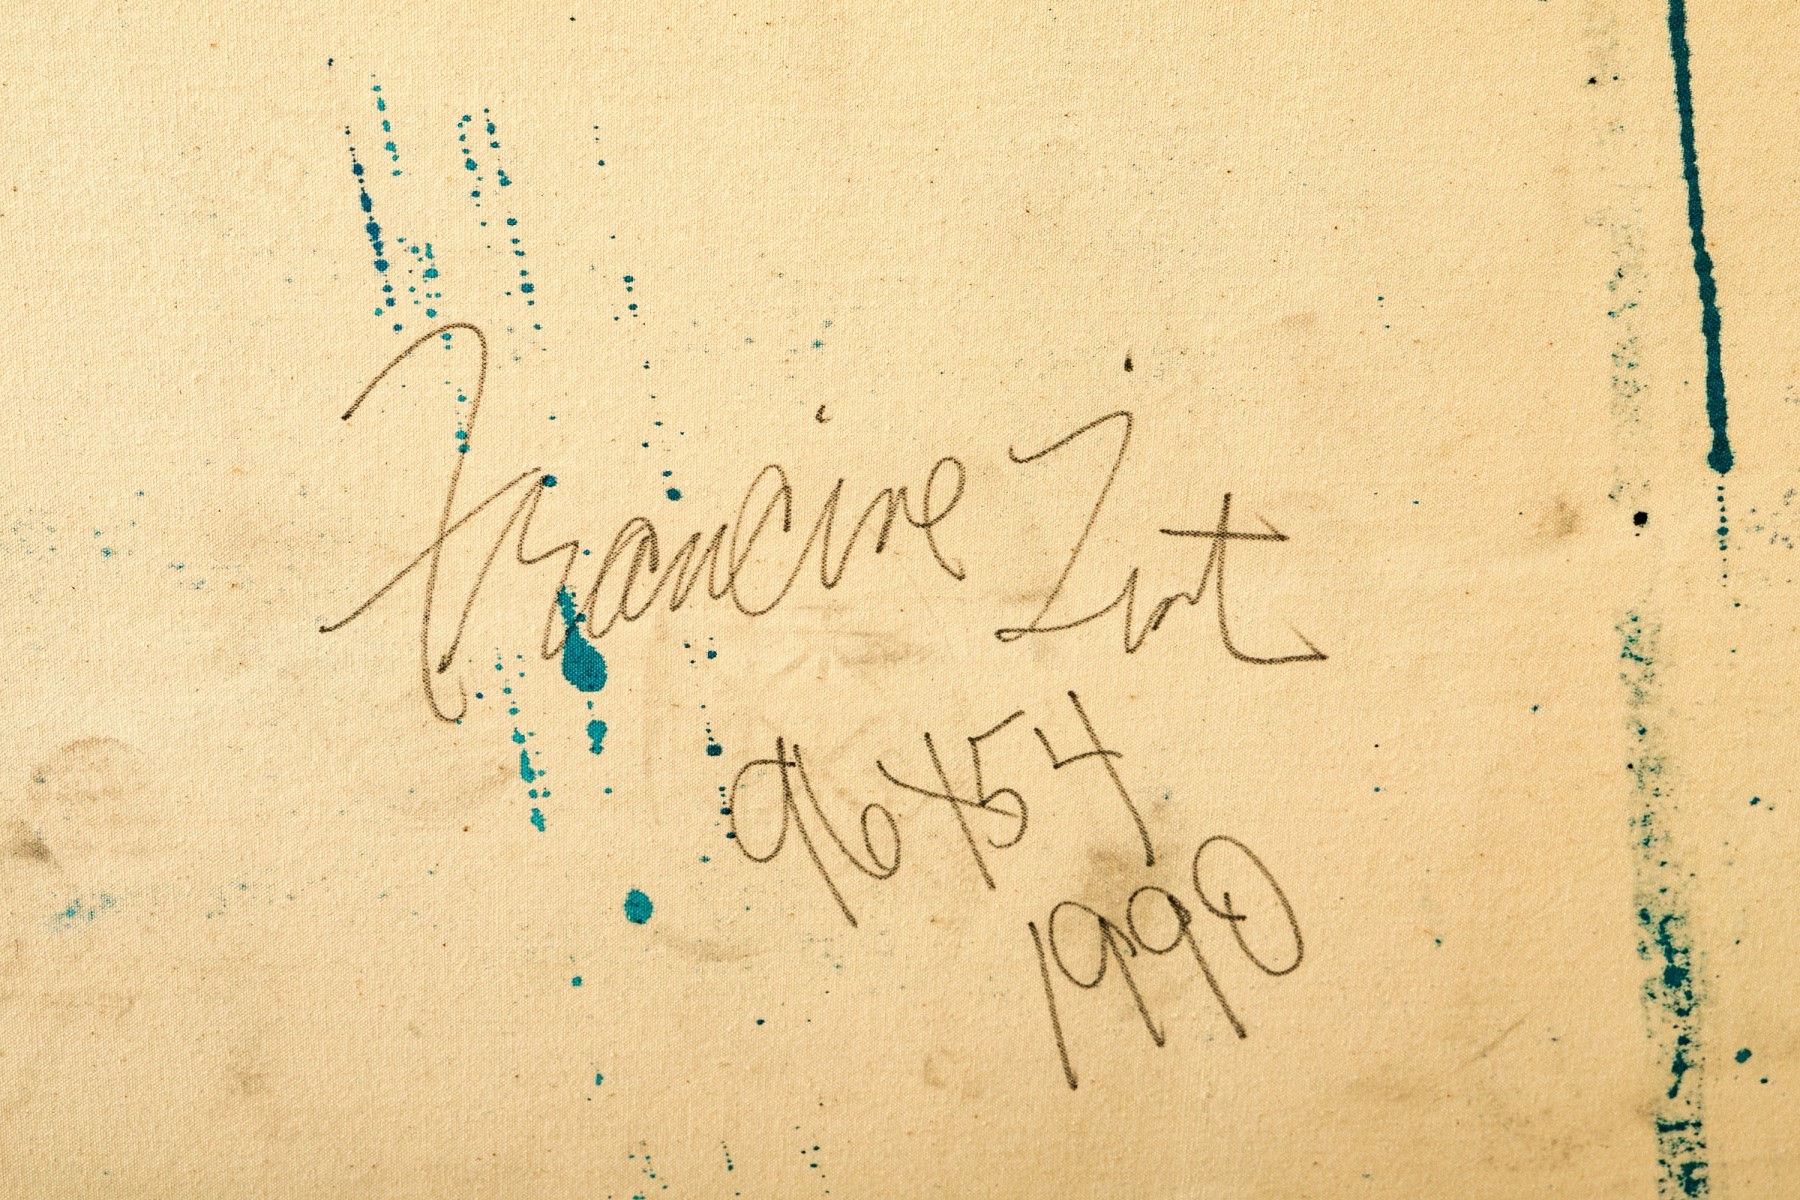 Francine Tint
96X54
1990